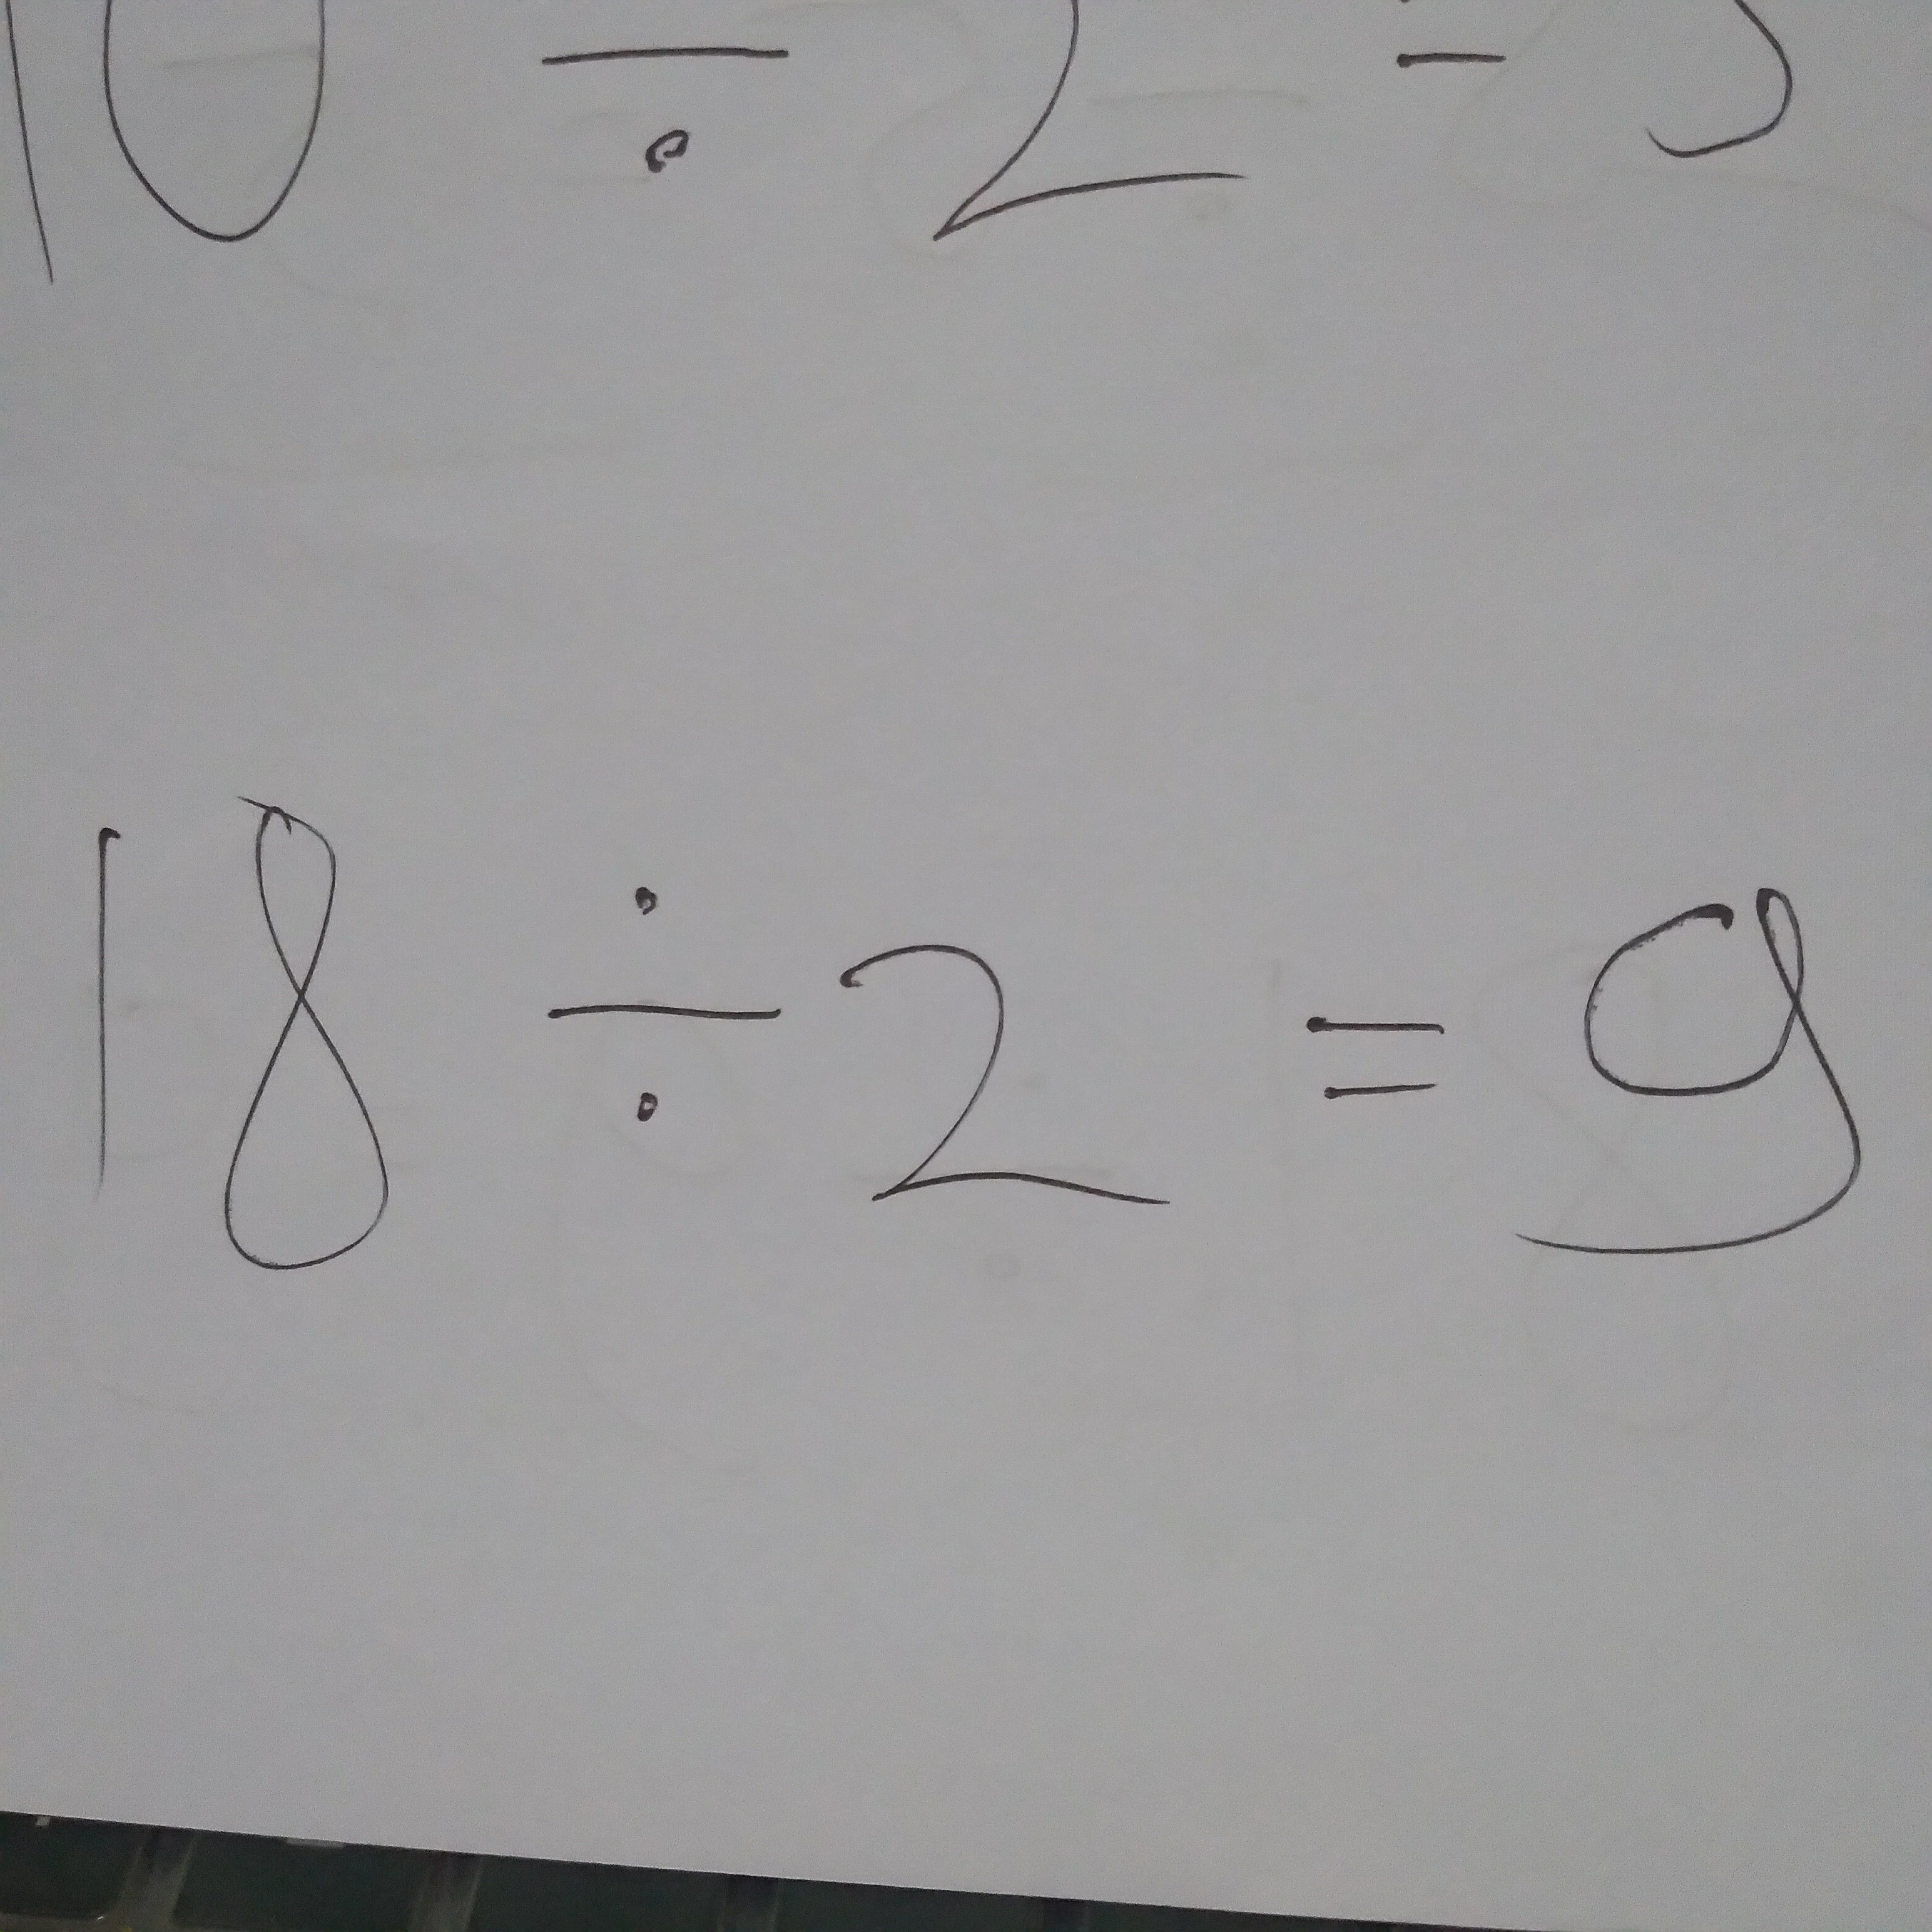 10 ÷ 2 = 5
18 ÷ 2 = 9